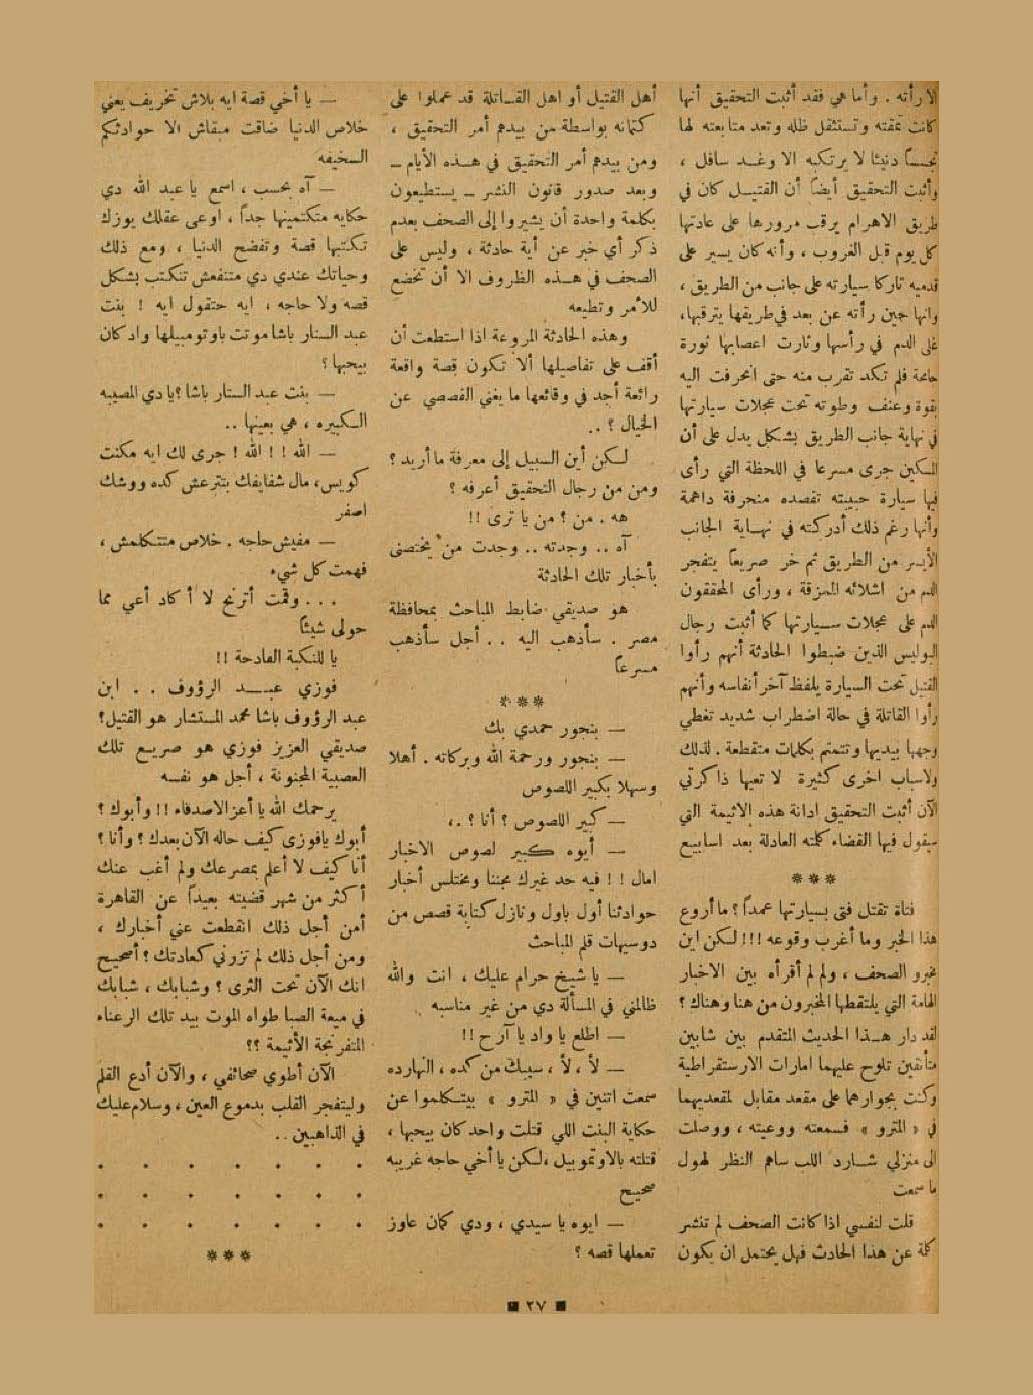 الا رأته . وأما هي فقد أثبت التحقيق أنها
كانت تمقته وتستثقل ظله وتعد متابعته لها
تجسساً دنيئا لا يرتكبه الا وغد سافل ،
وأثبت التحقيق أيضاً أن القتيل كان في
طريق الاهرام يرقب مرورها على عادتها
كل يوم قبل الغروب ، وأنه كان يسير على
قدميه تاركا سيارته على جانب من الطريق ،
وانها حين رأته عن بعد في طريقها يترقبها،
غلى الدم في رأسها وثارت اعصابها ثورة
جامحة فلم تكد تقرب منه حتى انحرفت اليه
بقوة وعنف وطوته تحت عجلات سيارتها
في نهاية جانب الطريق بشكل يدل على أن
المسكين جرى مسرعا في اللحظة التي رأى
فيها سيارة حبيبته تقصده منحرفة داهمة
وأنها رغم ذلك أدركته في نهاية الجانب
الأيسر من الطريق ثم خر صريعاً يتفجر
الدم من اشلائه الممزقة ، ورأى المحققون
الدم على عجلات سيارتها كما أثبت رجال
البوليس الذين ضبطوا الحادثة أنهم رأوا
القتيل تحت السيارة يلفظ آخر أنفاسه وأنهم
رأوا القاتلة في حالة اضطراب شديد تغطي
وجهها بيديها وتتمتم بكلمات متقطعة . لذلك
ولاسباب اخرى كثيرة لا تعيها ذاكرتي
الآن أثبت التحقيق ادانة هذه الاثيمة التي
سيقول فيها القضاء كلمته العادلة بعد اسابيع
***
فتاة تقتل فتى بسيارتها عمداً ؟ ما أروع
هذا الخبر وما أغرب وقوعه !!! لكن اين
مخبرو الصحف ، ولم لم أقرأه بين الاخبار
الهامة التي يلتقطها المخبرون من هنا وهناك ؟
لقد دار هذا الحديث المتقدم بين شابين
متأنقين تلوح عليهما امارات الارستقراطية
وكنت بجوارهما على مقعد مقابل لمقعديهما
في « المترو » فسمعته ووعيته ، ووصلت
الى منزلي شارد اللب ساهم النظر لهول
ما سمعت
قلت لنفسي اذا كانت الصحف لم تنشر
كلمة عن هذا الحادث فهل يحتمل ان يكون
أهل القتيل أو اهل القاتلة قد عملوا على
كتمانه بواسطة من بيدهم أمر التحقيق ،
ومن بيدهم أمر التحقيق في هذه الأيام –
وبعد صدور قانون النشر – يستطيعون
بكلمة واحدة أن يشيروا إلى الصحف بعدم
ذكر أي خبر عن أية حادثة ، وليس على
الصحف في هذه الظروف الا أن تخضع
للأمر وتطيعه
وهذه الحادثة المروعة اذا استطعت أن
أقف على تفاصيلها ألا تكون قصة واقعة
رائعة أجد في وقائعها ما يغني القصصي عن
الخيال ؟ ..
لكن أين السبيل إلى معرفة ما أريد ؟
ومن من رجال التحقيق أعرفه ؟
هه . من ؟ من يا ترى !!
آه .. وجدته .. وجدت من يختصني
بأخبار تلك الحادثة
هو صديقي ضابط المباحث بمحافظة
مصر . سأذهب اليه .. أجل سأذهب
مسرعاً
***
– بنجور حمدي بك
– بنجور ورحمة الله وبركاته . أهلا
وسهلا بكبير اللصوص
– كبير اللصوص ؟ أنا ؟ .،
– أيوه كبير لصوص الاخبار
امال !! فيه حد غيرك مجننا ومختلس أخبار
حوادثنا أول باول ونازل كتابة قصص من
دوسيهات قلم المباحث
– يا شيخ حرام عليك ، انت والله
ظالمني في المسألة دي من غير مناسبه
– اطلع يا واد يا آرح !!
– لأ ، لأ ، سيبك من كده ، النهارده
سمعت اتنين في « المترو » بيتكلموا عن
حكاية البنت اللي قتلت واحد كان بيحبها ،
قتلته بالاوتموبيل ،لكن يا أخي حاجه غريبه
صحيح
– ايوه يا سيدي ، ودي كمان عاوز
تعملها قصه ؟
– يا أخي قصة ايه بلاش تخريف يعني
خلاص الدنيا ضاقت مبقاش الا حوادثكم
السخيفه
– آه بحسب ، اسمع يا عبد الله دي
حكايه متكتمينها جداً ، اوعى عقلك يوزك
تكتبها قصة وتفضح الدنيا ، ومع ذلك
وحياتك عندي دي متنفعش تنكتب بشكل
قصه ولا حاجه ، ايه حتقول ايه ! بنت
عبد الستار باشا موتت باوتومبيلها واد كان
بيحبها ؟
– بنت عبد الستار باشا ؟ يا دي المصيبه
الكبيره ، هي بعينها ..
– الله !! الله ! جرى لك ايه مكنت
كويس، مال شفايفك بتترعش كده ووشك
اصفر
– مفيش حاجه . خلاص متتكلمش ،
فهمت كل شيء
... وقمت أترنح لا أكاد أعي مما
حولى شيئاً
يا للنكبة الفادحة !!
فوزي عبد الرؤوف .. ابن
عبد الرؤوف باشا محمد المستشار هو القتيل؟
صديقي العزيز فوزي هو صريع تلك
العصبية المجنونة ، أجل هو نفسه
يرحمك الله يا أعز الاصدقاء !! وأبوك ؟
أبوك يافوزى كيف حاله الآن بعدك ؟ وأنا ؟
أنا كيف لا أعلم بمصرعك ولم أغب عنك
أكثر من شهر قضيته بعيداً عن القاهرة
أمن أجل ذلك انقطعت عني أخبارك ،
ومن أجل ذلك لم تزرني كعادتك ؟ أصحيح
انك الآن تحت الثرى ؟ وشبابك ، شبابك
في ميعة الصبا طواه الموت بيد تلك الرعناء
المتفرنجة الأثيمة ؟؟
الآن أطوي صحائفي ، والآن أدع القلم
وليتفجر القلب بدموع العين ، وسلام عليك
في الذاهبين ..
. . . . . . .
. . . . . . .
. . . . . . .
***
■ ٢٧ ■